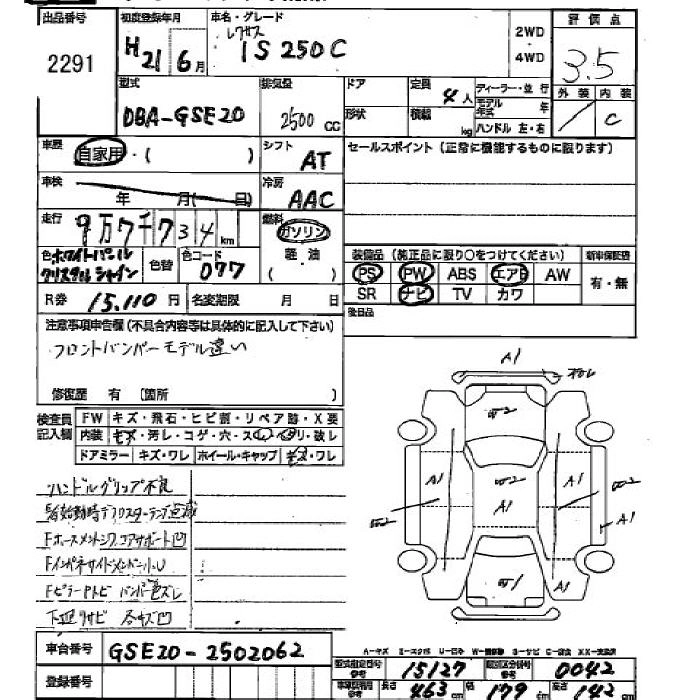 出品番号 初度登録年月 車名・グレード 評価点
2291 H21 6月 レクサス IS250C 2WD・4WD 3.5
型式 排気量 ドア 定員 ディーラー・並行 外装 内装
DBA-GSE20 2500cc 形状 4人 積載 kg モデル年式 年 ハンドル 左・右 C
車歴 自家用・( ) シフト AT セールスポイント(正常に機能するものに限ります)
車検 年 月( 日) 冷房 AAC
走行 9万7千734km 燃料 ガソリン 軽油 ( )
色 ホワイトパール クリスタルシャイン 色替 色コード 077 装備品(施工品に限り○をつけてください) 新車保証書
PS PW ABS エアB AW 有・無
SR ナビ TV カワ
R券 15,110円 名変期限 月 日 後日品
注意事項申告欄(不具合内容等は具体的に記入して下さい)
フロントバンパーモデル違い
修復歴 有 (箇所 )
検査員記入欄 FW キズ・飛石・ヒビ割・リペア跡・X要
内装 キズ・汚レ・コゲ・穴・スレ・ヘタリ・破レ
ドアミラー キズ・ワレ ホイール・キャップ キズ・ワレ
ハンドルグリップ不良
始動時デフロスターランプ点滅
コアサポート凹
Fインパネサイドメンバー
Fピラー トビ バンパー色ズレ
下廻リサビ 各キズ凹
A1
W2
A1 W2 A1
A1 W2
W2 A1
W1 A1
車台番号 GSE20-2502062
登録番号
A-キズ U-凹み S-サビ C-腐食 XX-交換済
型式指定番号 15127 類別区分番号 0042
長さ 463cm 幅 179cm 高さ 142cm